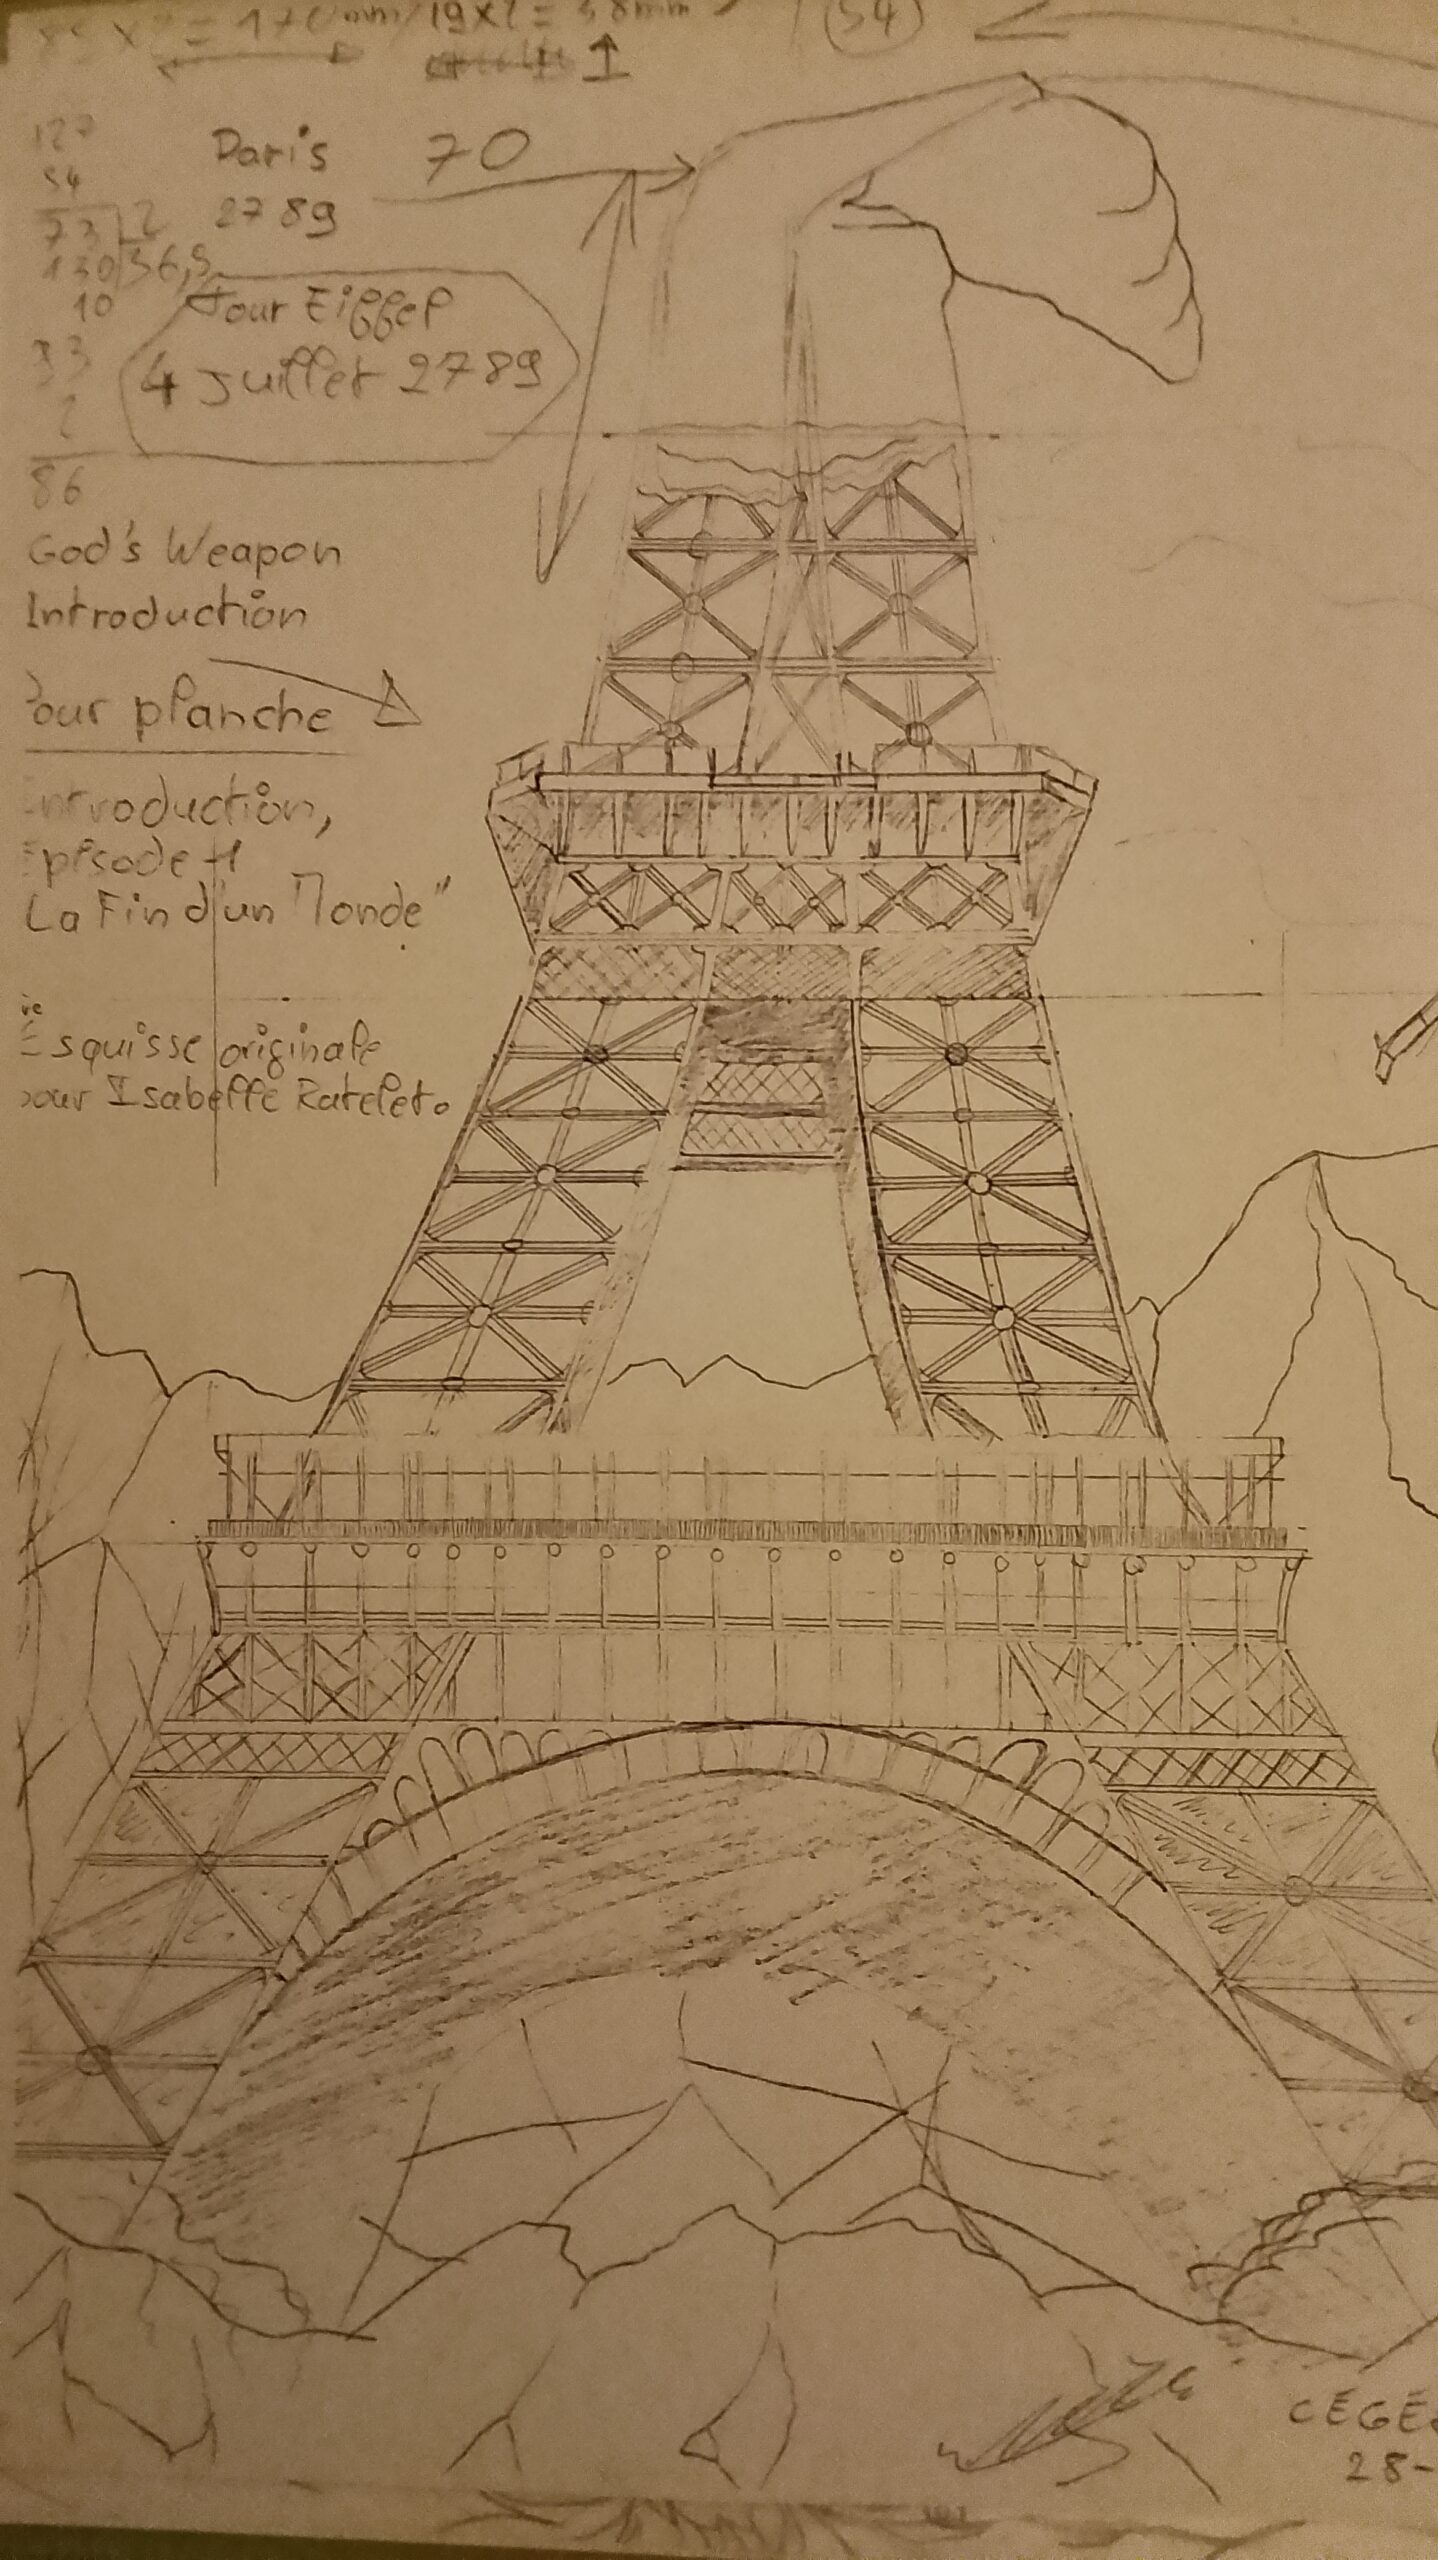 = 170 mm / 19x2 = 38mm
54
127
54
73 2
130 36,5
10
Paris 70
2789
Tour Eiffel
4 Juillet 2789
33
2
86
God's Weapon
Introduction
Pour planche
Introduction,
Episode 1
La Fin d'un Monde"
Esquisse originale
pour Isabelle Ratelet.
CÉGÉ
28-